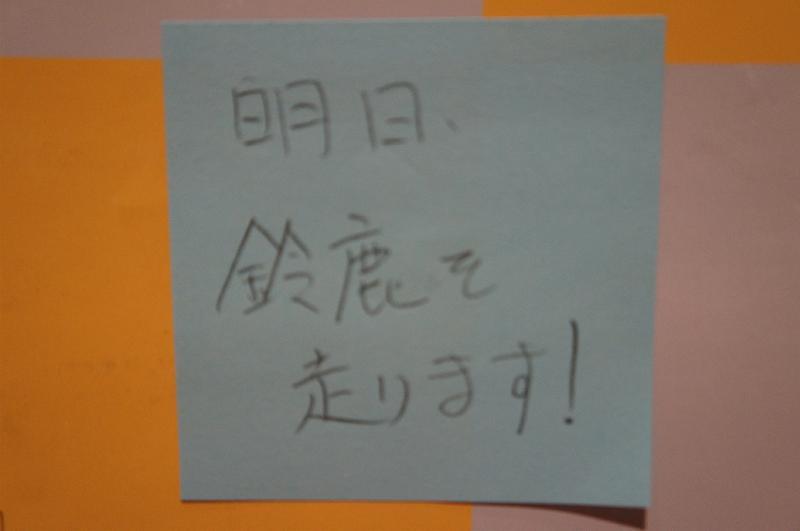 明日、
鈴鹿を
走ります!